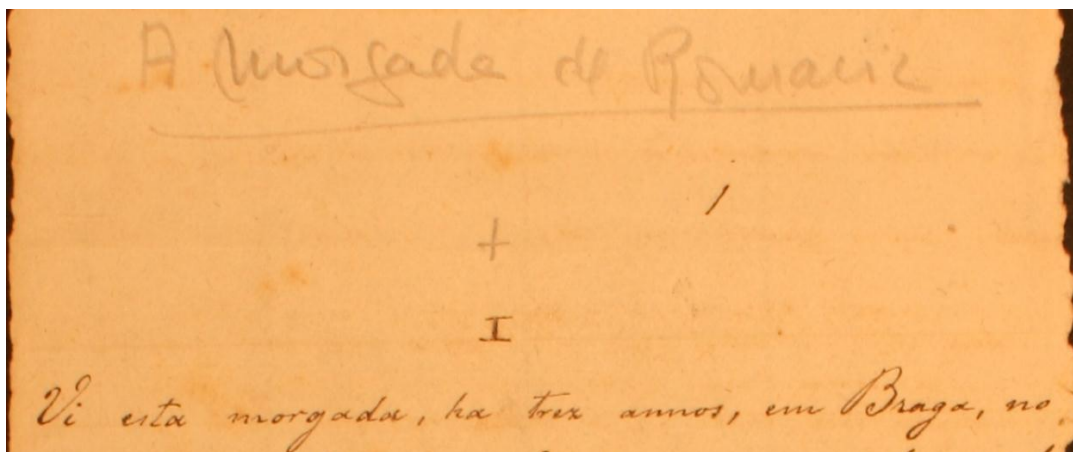 A Morgada de Romariz
/
+
I
Vi esta morgada, ha trez annos, em Braga, no